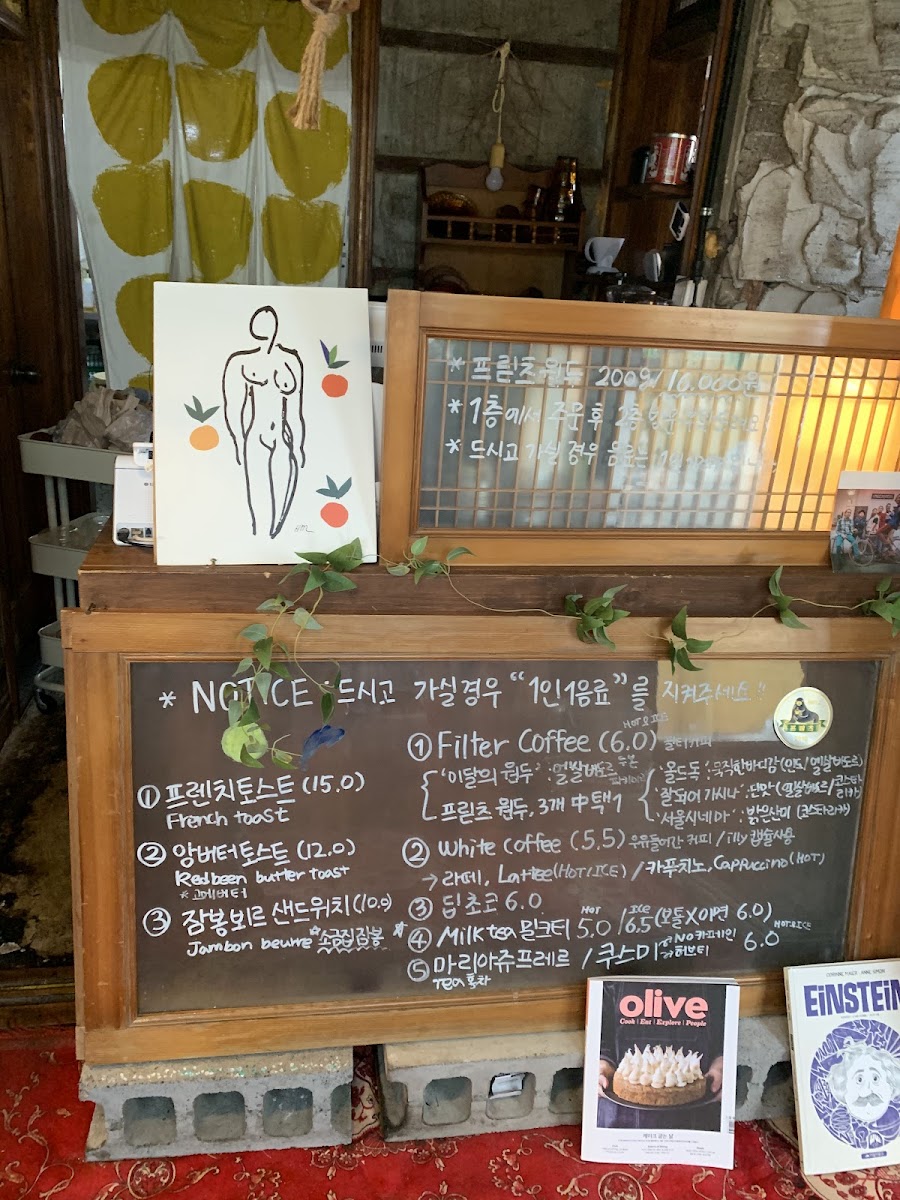 * 프릳츠 원두 200g/16,000원
* 1층에서 주문 후 2층
* 드시고 가실 경우 음료는 1인
* NOTICE 드시고 가실경우 "1인1음료"를 지켜주세요!!
① 프렌치토스트 (15.0)
French toast
② 앙버터토스트 (12.0)
Redbeen butter toast
*고메버터
③ 잠봉뵈르 샌드위치 (10.0)
Jambon beurre *소금집잠봉*
HOT&ICE
① Filter Coffee (6.0) 필터커피
'이달의 원두' : 엘살바도르
프릳츠 원두, 3개 中 택1
'올드독' : 묵직한바디감 (인도/엘살바도르)
'잘되어 가시나' : 단맛 (엘살바도르/코스타리카)
'서울시네마' : 밝은산미 (코스타리카)
② White coffee (5.5) 우유들어간 커피 / illy 캡슐사용
→ 라떼, Lattee (HOT/ICE) / 카푸치노, Cappuccino (HOT)
③ 딥초코 6.0
④ Milk tea 밀크티 HOT 5.0 / ICE 6.5 (보틀X이면 6.0)
⑤ 마리아쥬프레르 / 쿠스미 NO카페인 허브티 6.0 HOT&ICE
Tea 홍차
olive
Cook | Eat | Explore | People
EINSTEIN